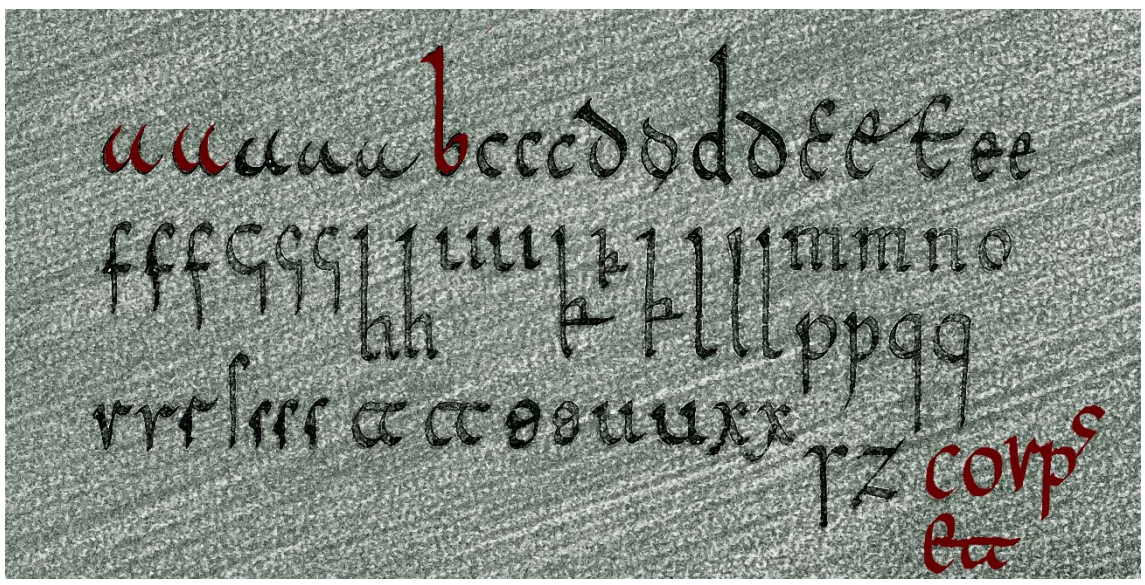 a a a a a b c c c d d d d e e e e e
f f f g g g h h i i i i k k k l l l m m n o
p p q q
r r r s s s s t t u u x x
y z corps